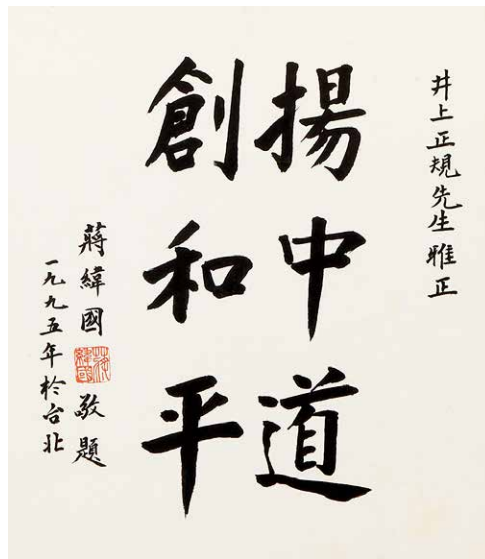 井上正規先生雅正
揚中道
創和平
蔣緯國敬題
一九九五年於台北